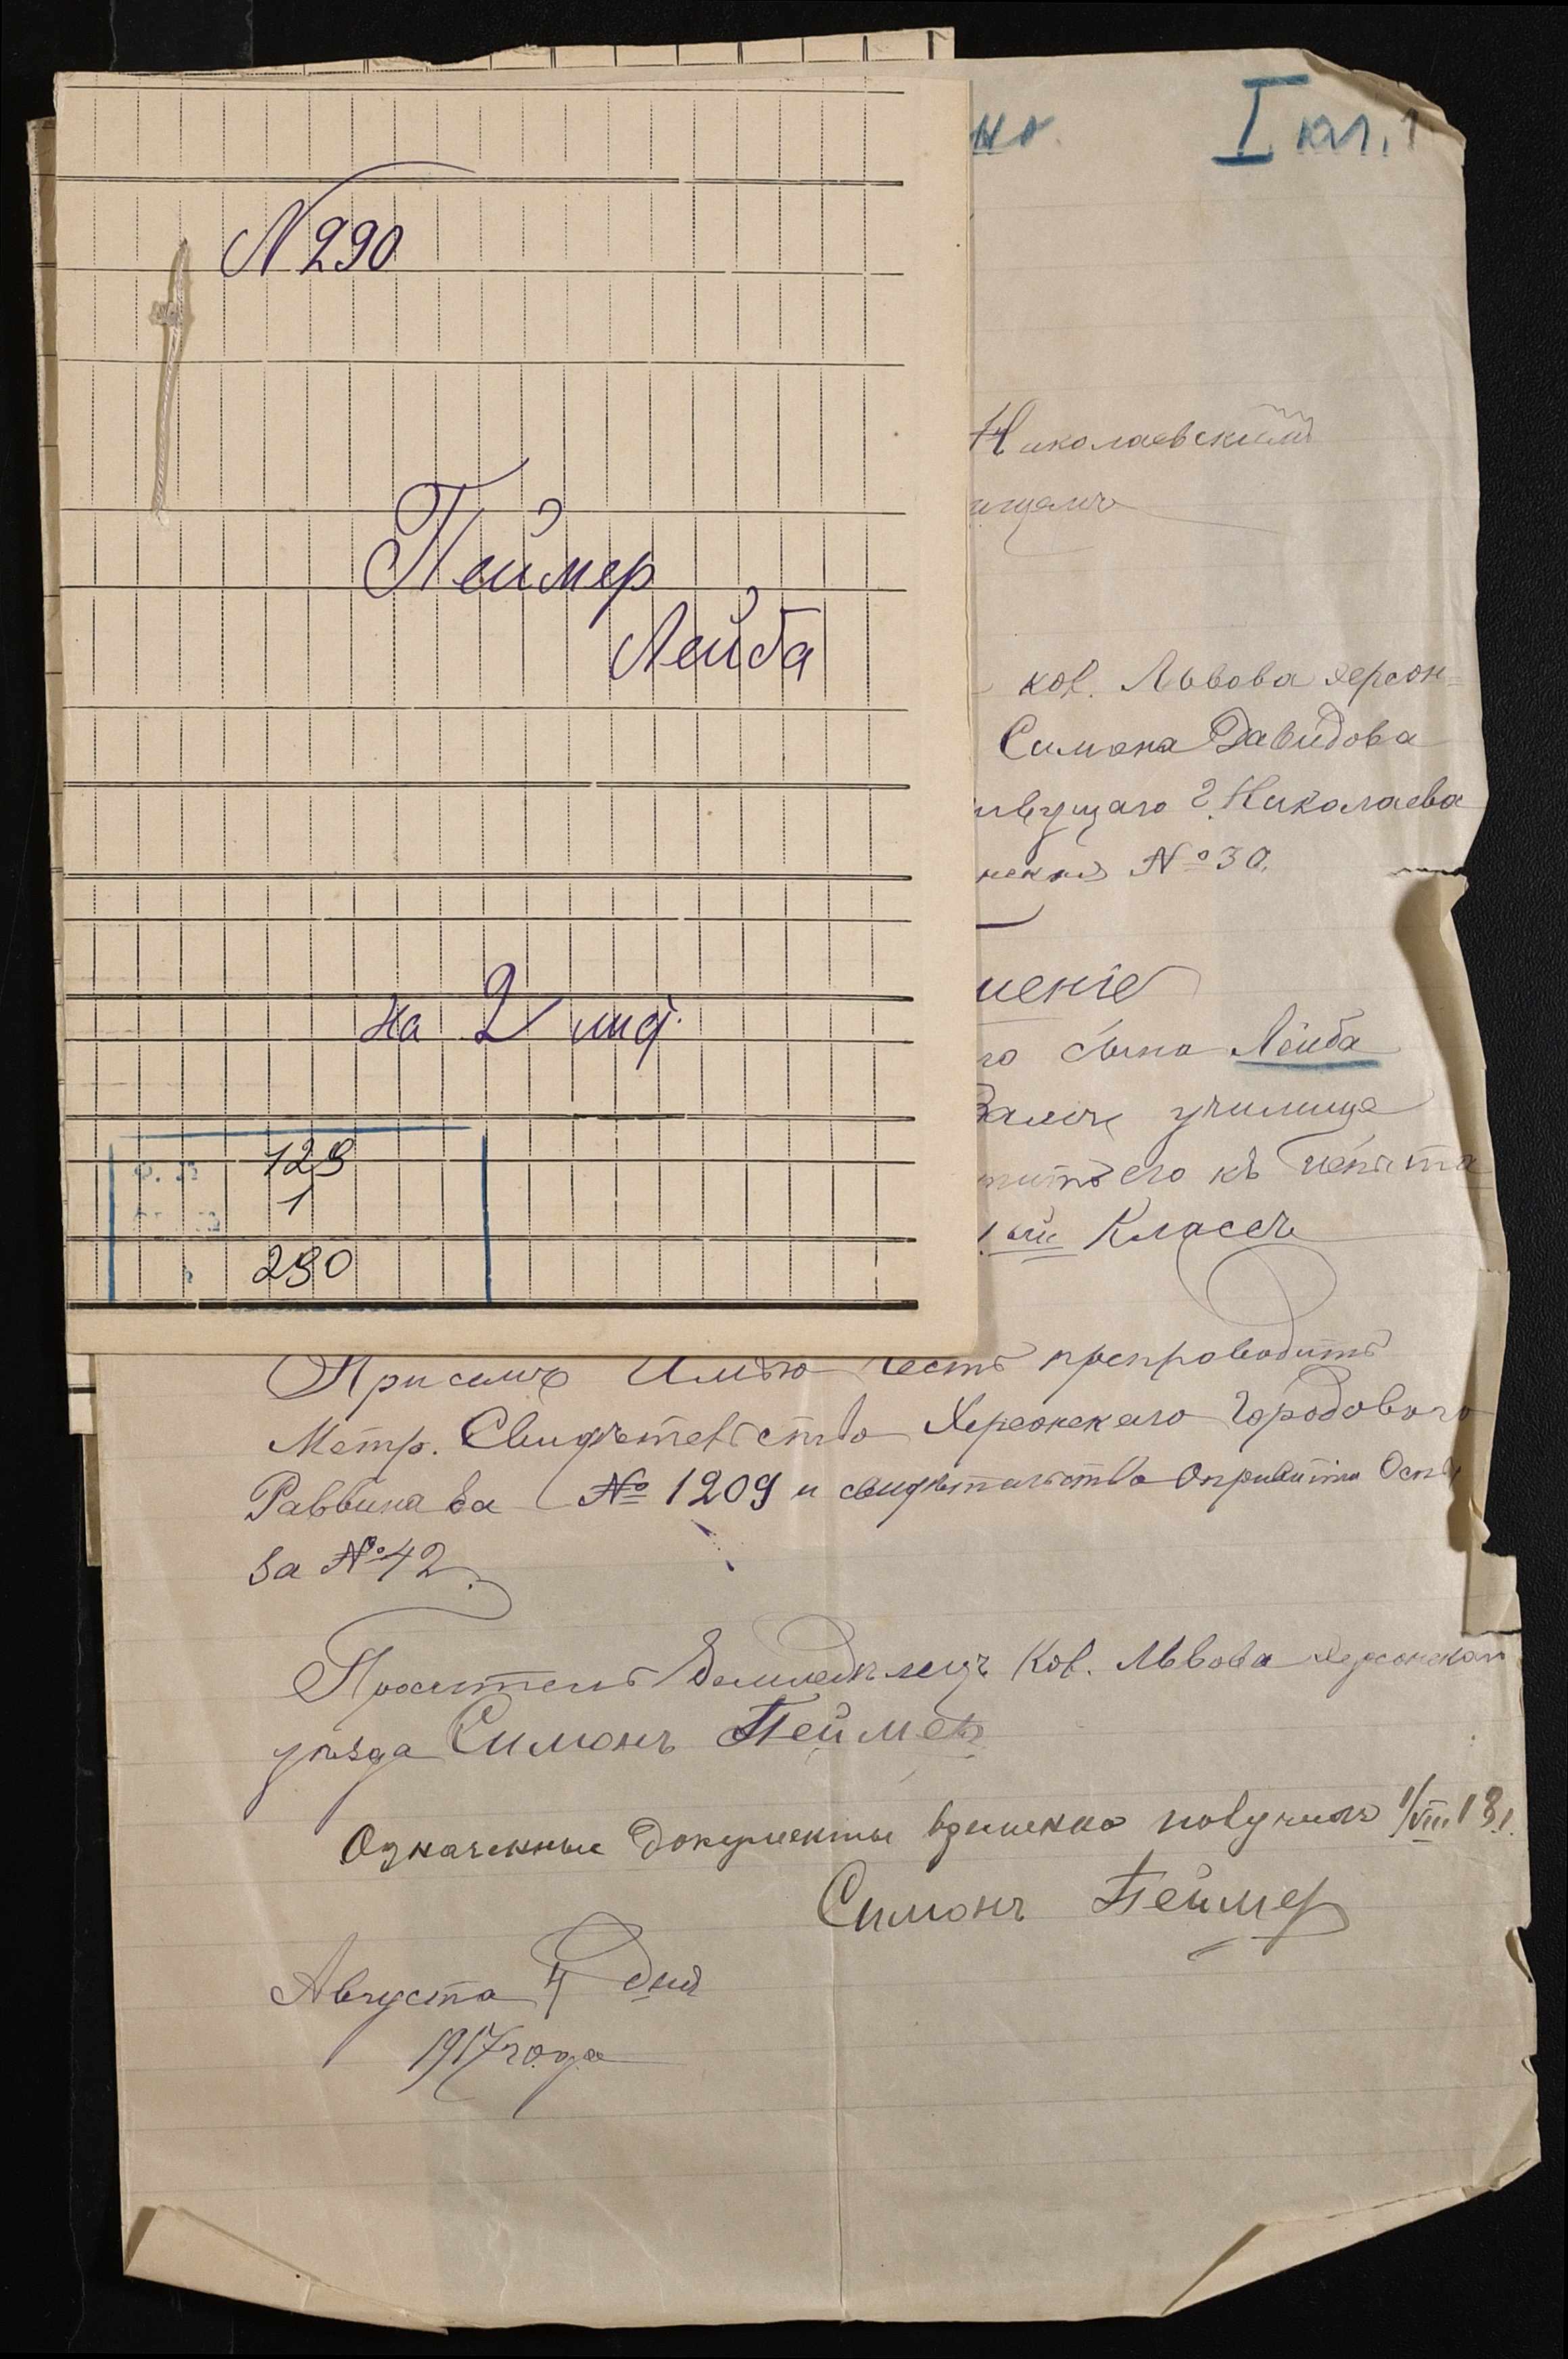 № 290
Пеймер
Лейба
на 2 лист.
129
1
290
но.
I кл.
Николаевский
кол. Львова Херсон=
Симона Давидова
ивущаго г. Николаева
нская № 30.
шеніе
го сына Лейба
училище
его къ
1ый Классъ
При семъ Имѣю честь препроводить
Метр. Свидѣтельство Херсонскаго Городового
Раввина за № 1209 и свидѣтельство Оспы
за № 42.
Проситель Земледѣлецъ Кол. Львова Херсонскаго
уѣзда Симонъ Пеймер
Означенные документы получилъ 1/VIII 18 г.
Симонъ Пеймер
Августа 4 дня
1917 года